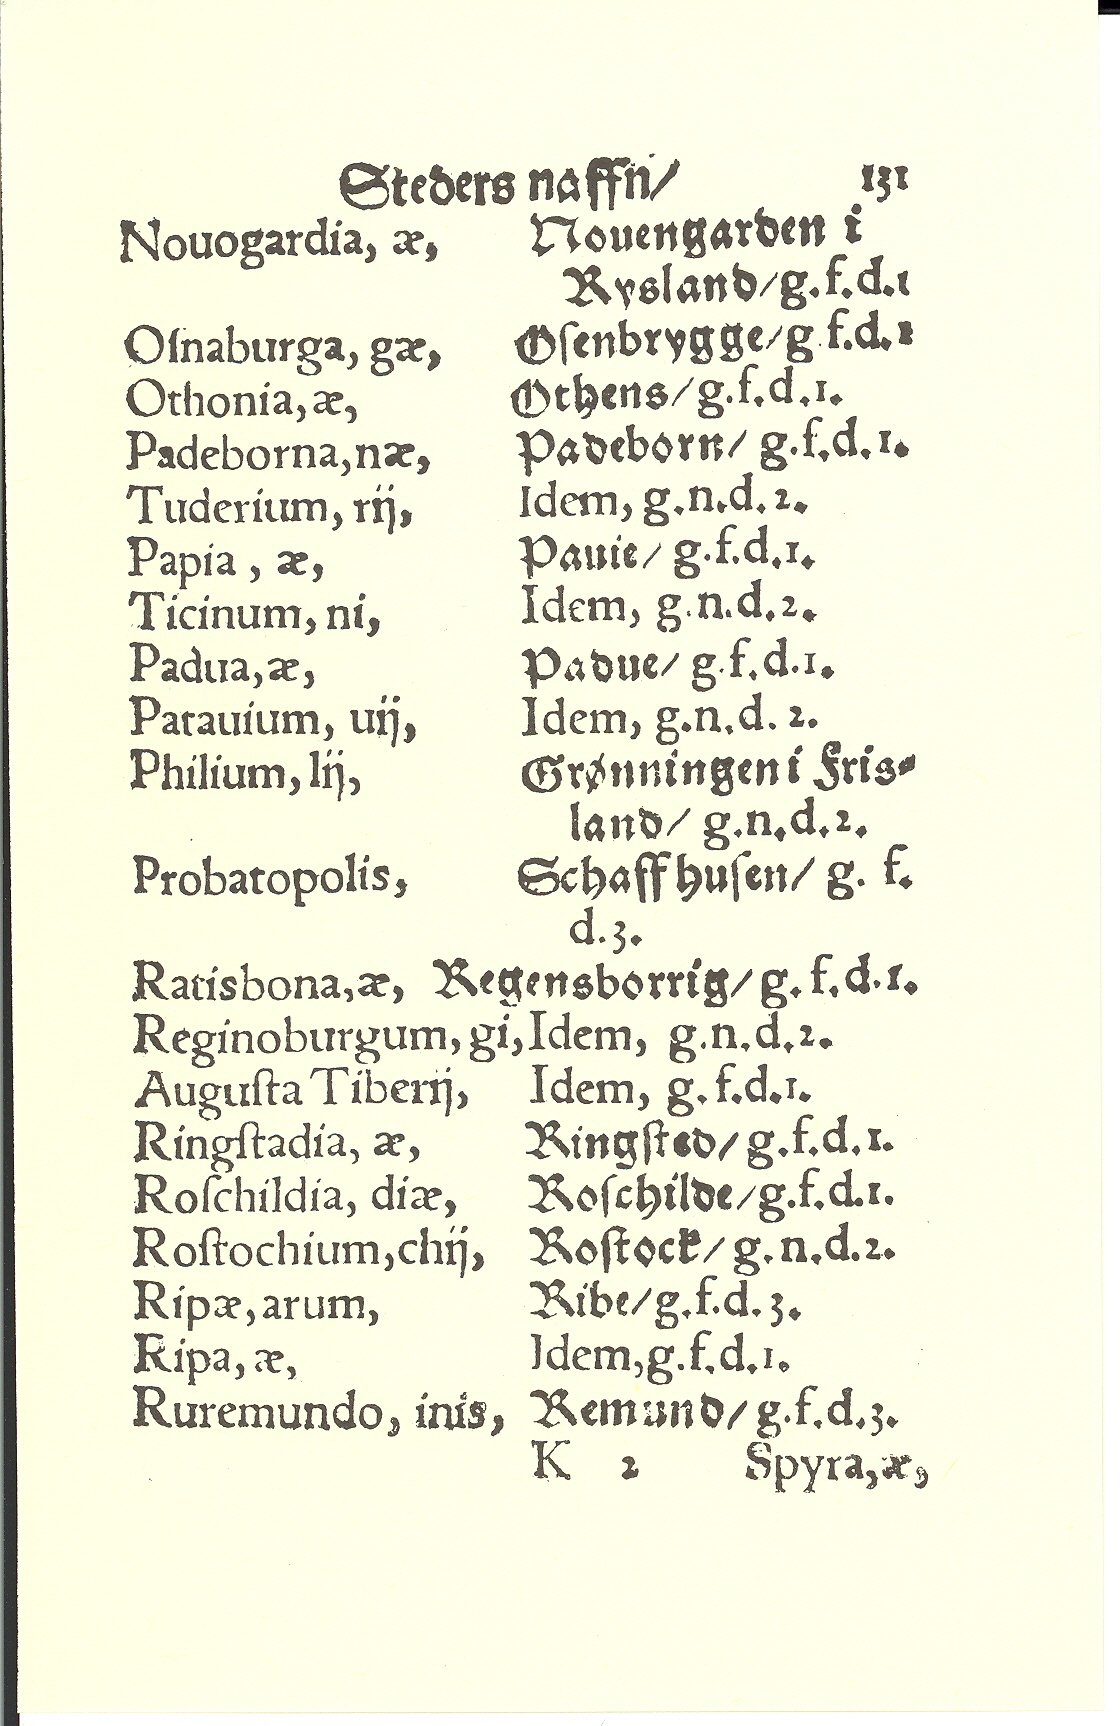 Steders naffn/ 131
Nouogardia, æ, Nouengarden i
Rysland/g.f.d.1
Oſnaburga, gæ, Oſenbrygge/g f.d.1
Othonia,æ, Othens/g.f.d.1.
Padeborna,næ, Padeborn/ g.f.d.1.
Tuderium, rĳ, Idem, g.n.d.2.
Papia , æ, Pauie/ g.f.d.1.
Ticinum, ni, Idem, g.n.d.2.
Padua,æ, Padue/ g.f.d.1.
Patauium, uĳ, Idem, g.n.d. 2.
Philium, lĳ, Grønningen i Fris⸗
land/ g.n.d.2.
Probatopolis, Schaffhuſen/ g. f.
d.3.
Ratisbona,æ, Regensborrig/g.f.d.1.
Reginoburgum, gi, Idem, g.n.d.2.
Auguſta Tiberĳ, Idem, g.f.d.1.
Ringſtadia, æ, Ringſted/g.f.d.1.
Roſchildia, diæ, Roſchilde/g.f.d.1.
Roſtochium,chĳ, Roſtock/g.n.d.2.
Ripæ,arum, Ribe/g.f.d.3.
Ripa, æ, Idem,g.f.d.1.
Ruremundo, inis, Remund/g.f.d.3.
K 2 Spyra,æ,